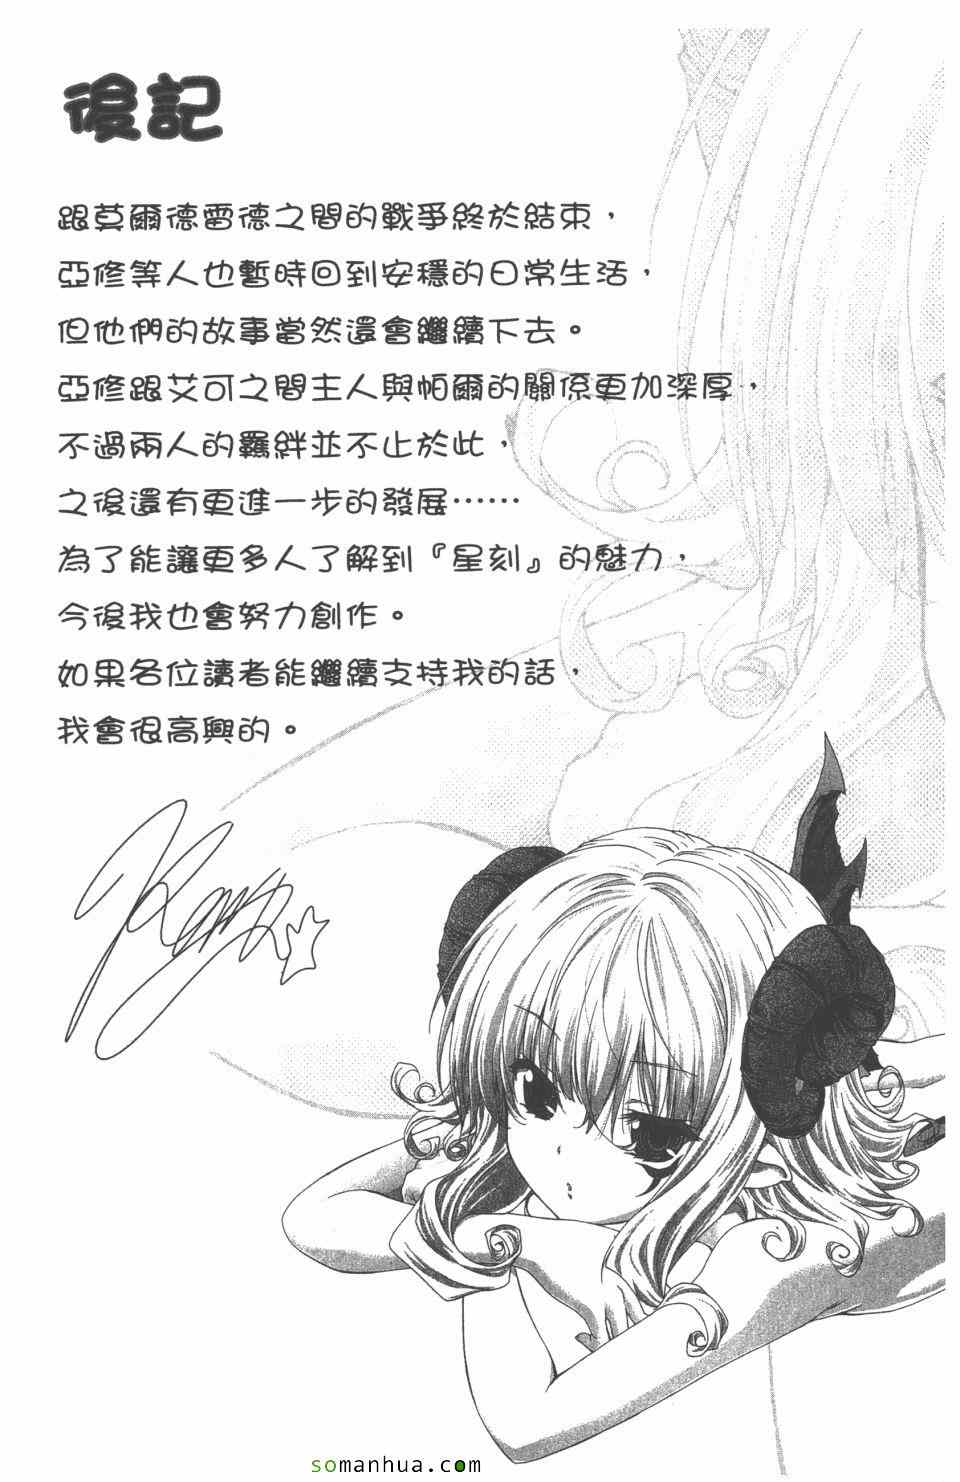 後記
跟莫爾德雷德之間的戰爭終於結束，
亞修等人也暫時回到安穩的日常生活，
但他們的故事當然還會繼續下去。
亞修跟艾可之間主人與帕爾的關係更加深厚，
不過兩人的羈絆並不止於此，
之後還有更進一步的發展……
為了能讓更多人了解到『星刻』的魅力，
今後我也會努力創作。
如果各位讀者能繼續支持我的話，
我會很高興的。
somanhua.com